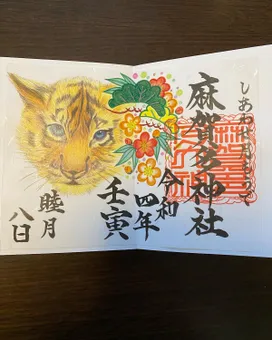 しあわせ
麻賀多神社
令和
四年
壬寅
睦月
八日